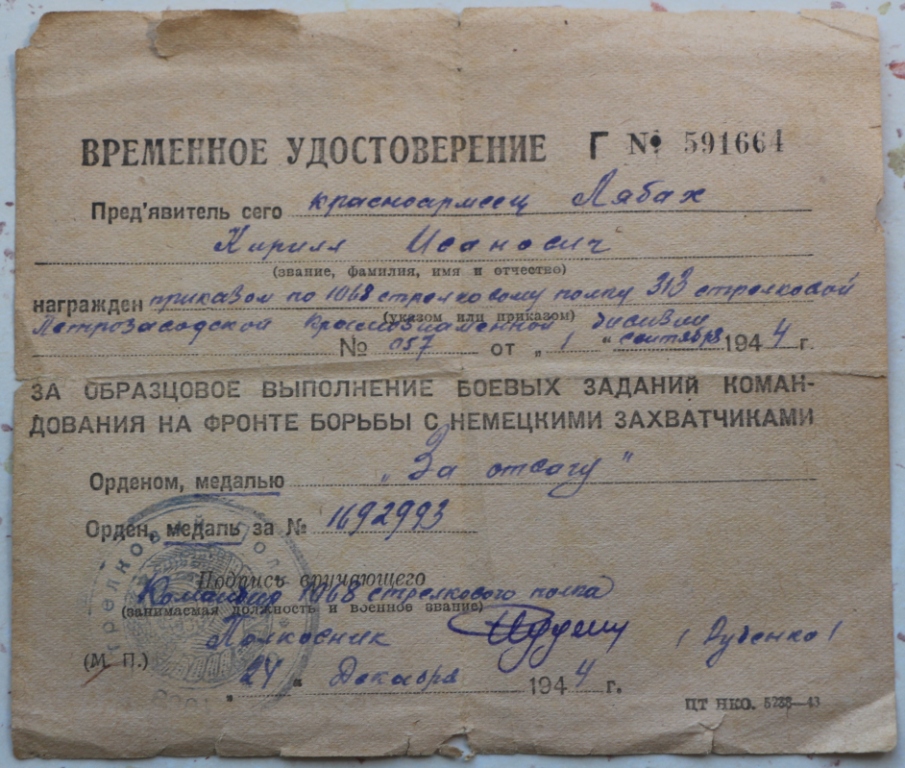 ВРЕМЕННОЕ УДОСТОВЕРЕНИЕ Г № 591664
Пред'явитель сего красноармеец Лябах
Кирилл Исакович
(звание, фамилия, имя и отчество)
награжден приказом по 1068 стрелковому полку 313 стрелковой
(указом или приказом)
Петрозаводской Краснознаменной дивизии
№ 057 от „1" сентября 1944 г.
ЗА ОБРАЗЦОВОЕ ВЫПОЛНЕНИЕ БОЕВЫХ ЗАДАНИЙ КОМАН-
ДОВАНИЯ НА ФРОНТЕ БОРЬБЫ С НЕМЕЦКИМИ ЗАХВАТЧИКАМИ
Орденом, медалью „За отвагу"
Орден, медаль за № 1692993
Подпись вручающего
Командир 1068 стрелкового полка
(занимаемая должность и военное звание)
Полковник (Дубенко)
(М. П.)
„24" Декабря 1944 г.
ЦТ НКО. 5288—43